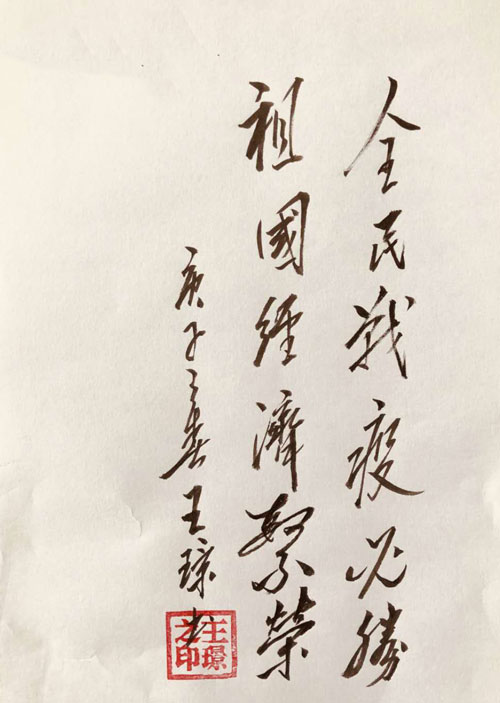 全民戰疫必勝
祖國經濟繁榮
庚子之春王璟
王璟之印